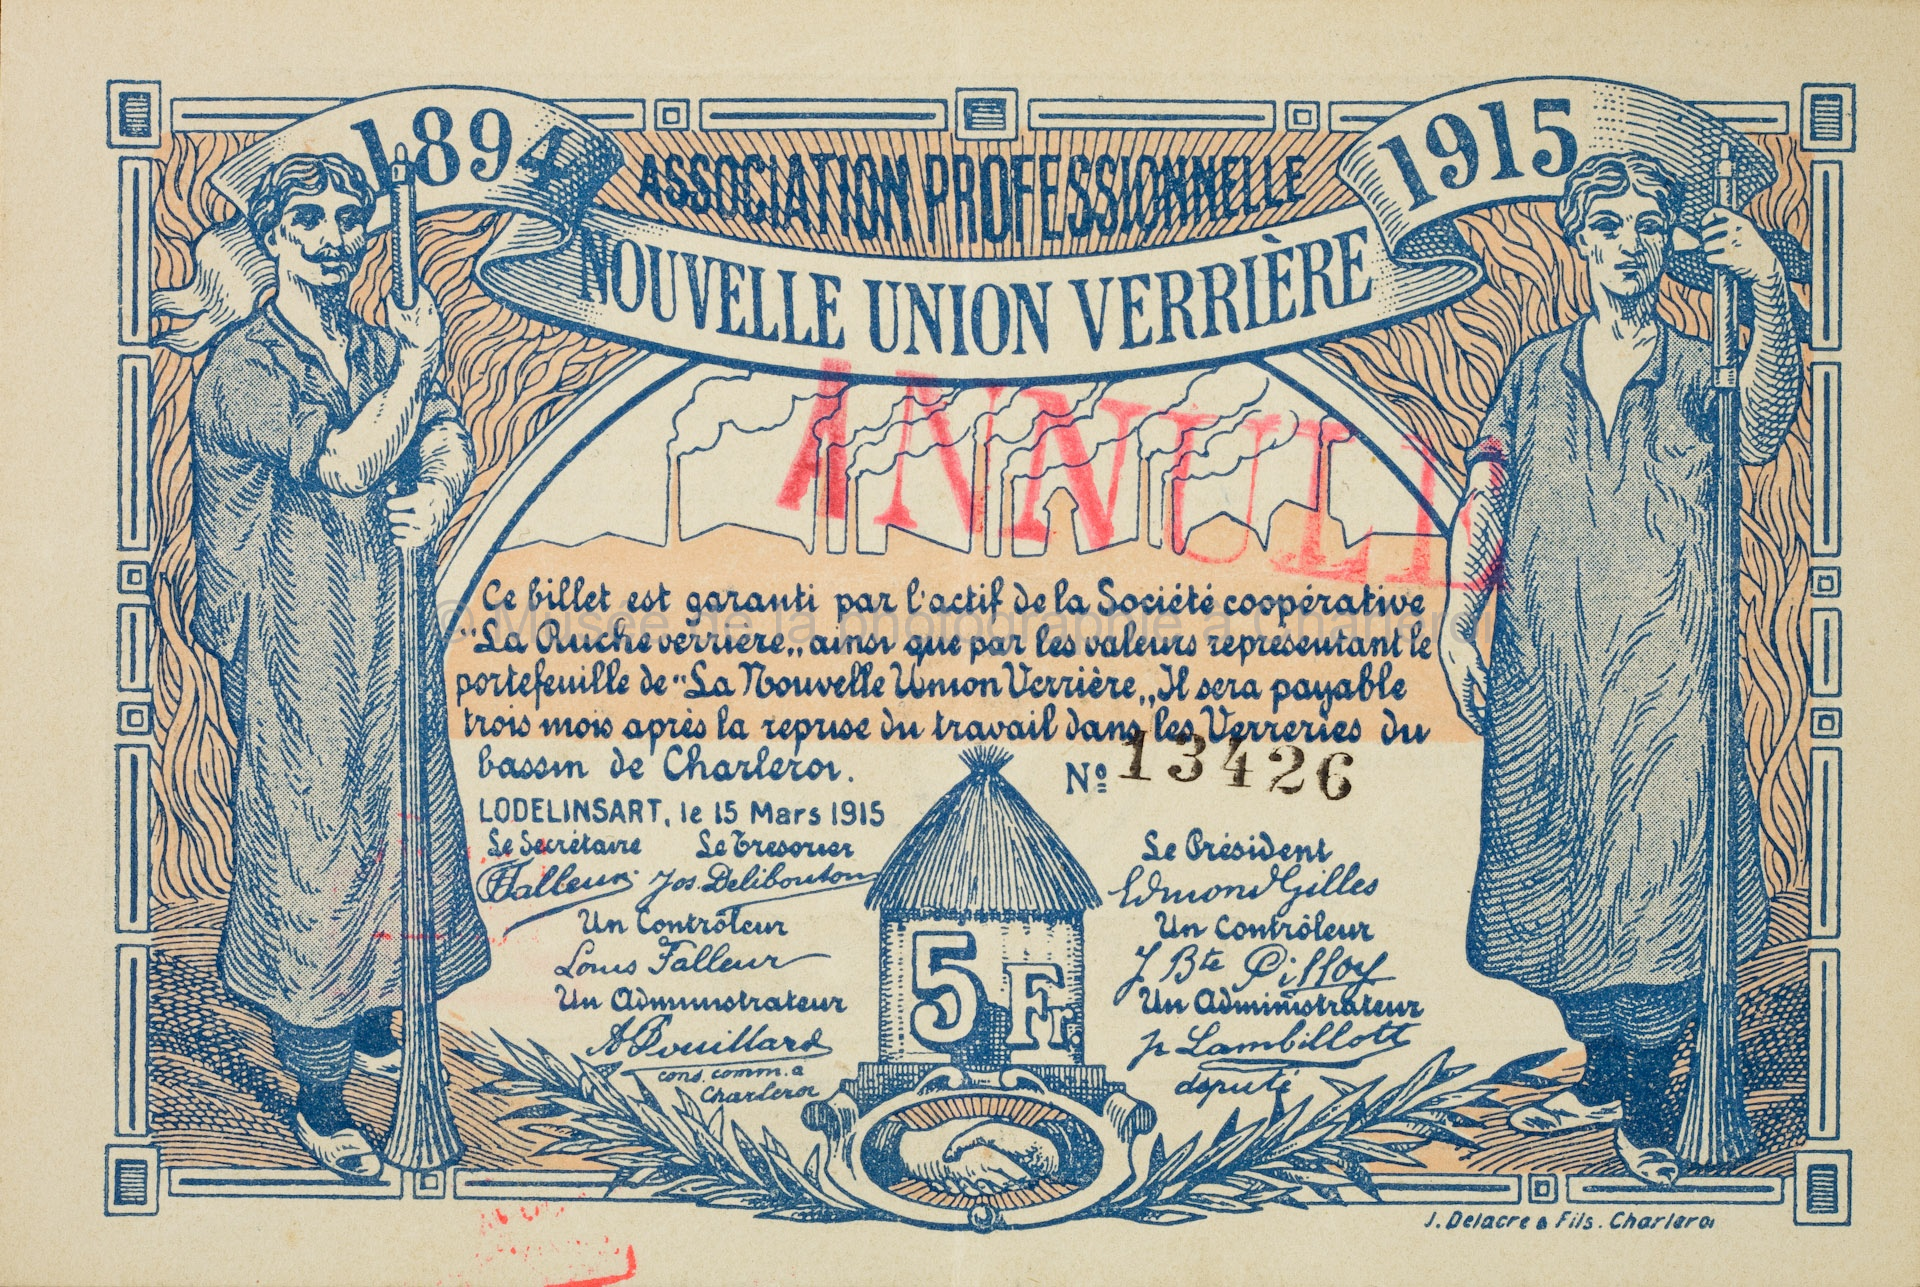 1894
1915
ASSOCIATION PROFESSIONNELLE
NOUVELLE UNION VERRIÈRE
ANNULÉ
Ce billet est garanti par l'actif de la Société coopérative
"La Ruche verrière„ ainsi que par les valeurs représentant le
portefeuille de "La Nouvelle Union Verrière„ Il sera payable
trois mois après la reprise du travail dans les Verreries du
bassin de Charleroi.
Nº 13426
© Musée de la photographie à Charleroi
LODELINSART, le 15 Mars 1915
Le Secrétaire Le Trésorier
Falleur Jos. Delibouton
Un Contrôleur
Louis Falleur
Un Administrateur
A Pouillard
cons. comm. à
Charleroi
5 Fr.
Le Président
Edmond Gilles
Un Contrôleur
J Bte Pilloy
Un Administrateur
Lambillott
député
J. Delacre & Fils. Charleroi